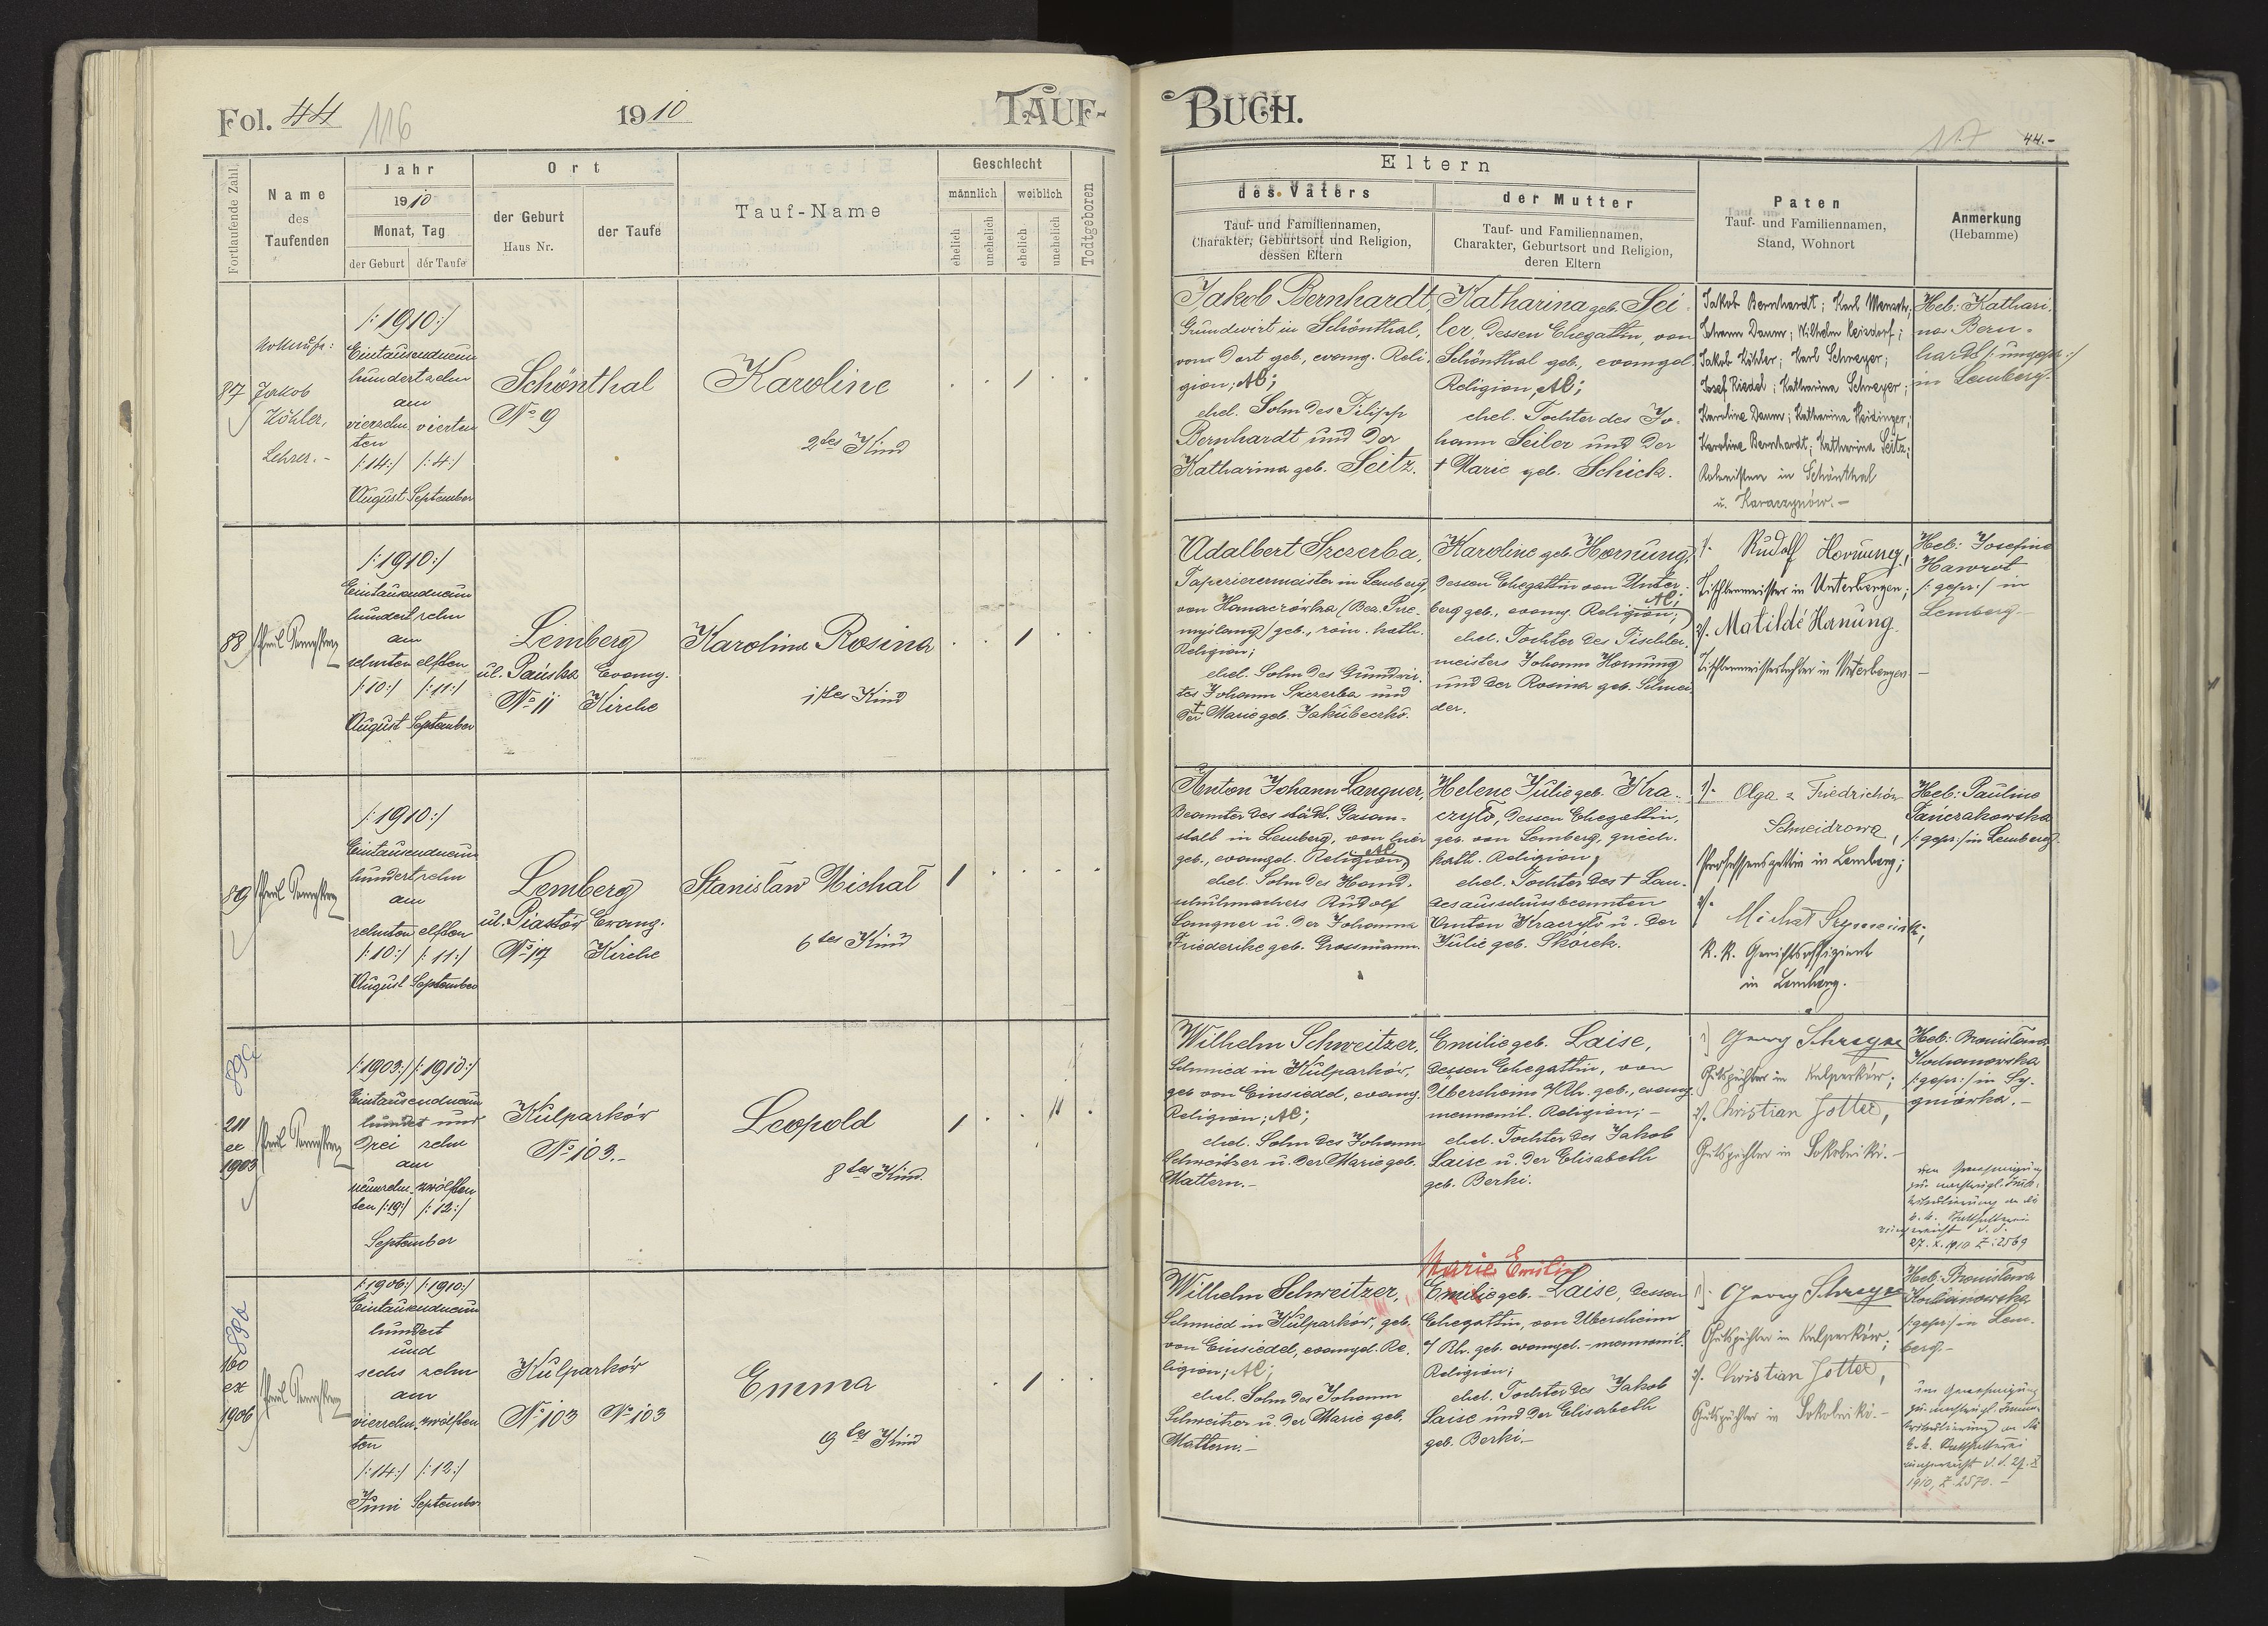 Fol. 44
116
1910
TAUF-
BUCH.
44.-
Fortlaufende Zahl
Name
des
Taufenden
Jahr
1910
Monat, Tag
der Geburt
der Taufe
Ort
der Geburt
Haus Nr.
der Taufe
Tauf-Name
Geschlecht
männlich
weiblich
ehelich
unehelich
ehelich
unehelich
Todtgeboren
Eltern
des Vaters
Tauf- und Familiennamen,
Charakter, Geburtsort und Religion,
dessen Eltern
der Mutter
Tauf- und Familiennamen,
Charakter, Geburtsort und Religion,
deren Eltern
Paten
Tauf- und Familiennamen,
Stand, Wohnort
Anmerkung
(Hebamme)
87
Jakob
Köhler,
Lehrer.-
/:1910:/
Eintausendneun
hundert zehn
am
vierzehn vierten
ten
/:14:/ /:4:/
August September
Schönthal
No 9
Karoline
2tes Kind
Jakob Bernhardt,
Grundwirt in Schönthal,
von dort geb., evang. Reli-
gion; AC;
ehel. Sohn des Filipp
Bernhardt und der
Katharina geb. Seitz.
Katharina geb. Sei-
ler, dessen Ehegattin, von
Schönthal geb., evangel.
Religion, AC;
ehel. Tochter des Jo-
hann Seiler und der
† Marie geb. Schick.
Jakob Bernhardt; Karl
Johann Daum; Wilhelm
Jakob Köhler; Karl Schreyer;
Josef Riedel; Katharina Schreyer;
Karoline Daum; Katharina
Karoline Bernhardt; Katharina Seitz;
Kolonisten in Schönthal
u. Karaczynów.-
Heb: Kathari-
na Bern-
hardt /:ungepr:/
in Lemberg.
88
/:1910:/
Eintausendneun
hundert zehn
am
zehnten elften
/:10:/ /:11:/
August September
Lemberg
ul. Pańska Evang.
No 11 Kirche
Karolina Rosina
1stes Kind
Adalbert Szczerba,
Tapezierermeister in Lemberg,
von Hanaczówka (Bez. Prze-
myślany) geb., röm. kath.
Religion;
ehel. Sohn des Grundwir-
tes Johann Szczerba und
der † Marie geb. Jakubeczko.
Karoline geb. Hornung,
dessen Ehegattin von Unter-
berg geb., evang. Religion, AC;
ehel. Tochter des Tischler-
meisters Johann Hornung
und der Rosina geb. Schnei-
der.
1/. Rudolf Hornung,
Tischlermeister in Unterbergen;
2/. Matilde Hornung
Tischlermeisterstochter in Unterbergen
Heb: Josefine
Hawrot
/:gepr:/ in
Lemberg.-
89
/:1910:/
Eintausendneun
hundert zehn
am
zehnten elften
/:10:/ /:11:/
August September
Lemberg
ul. Piastów Evang.
No 17 Kirche
Stanisław Michał
6tes Kind
Anton Johann Languer,
Beamter des städt. Gasan-
stalt in Lemberg, von hier
geb., evangel. Religion, AC
ehel. Sohn des Hand-
schuhmachers Rudolf
Languer u. der Johanna
Friederike geb. Grossmann.
Helene Julie geb. Kra-
czyło, dessen Ehegattin,
geb. von Lemberg, griech.
kath. Religion;
ehel. Tochter des † Lan-
desausschussbeamten
Anton Kraczyło u. der
Julie geb. Skórek.
1/. Olga z Friedrichów
Schneidrowa,
Professorsgattin in Lemberg;
2/.
K.K. Gerichtsoffizient
in Lemberg.
Heb: Pauline
Tańczakowska
/:gepr:/ in Lemberg.
89a
211
ex
1903
/:1903:/ /:1910:/
Eintausendneun
hundert und
drei zehn
am
neunzehn- zwölften
ten /:19:/ /:12:/
September
Kulparków
No 103.-
Leopold
8tes Kind.
Wilhelm Schweitzer,
Schmied in Kulparków,
geb von Einsiedel, evang.
Religion, AC;
ehel. Sohn des Johann
Schweitzer u. der Marie geb.
Mattern.-
Emilie geb. Laise,
dessen Ehegattin, von
Ubersheim a/Rh. geb., evang.
mennonit. Religion;-
ehel. Tochter des Jakob
Laise u. der Elisabeth
geb. Berki.
1) Georg Schreyer
Gutspächter in Kulparków;
2/. Christian Jotter,
Gutspächter in Sokolniki.-
Heb: Bronisława
Kochanowska
/:gepr:/ in Sy-
gniówka.-
Um Genehmigung
zur nachträgl. Imma-
trikulierung an die
k.k. Statthalterei
eingereicht d.d.
27.X.1910 Z:2569
89b
160
ex
1906
/:1906:/ /:1910:/
Eintausendneun
hundert
und
sechs zehn
am
vierzehn- zwölften
ten
/:14:/ /:12:/
Juni September
Kulparków
No 103 No 103
Emma
9tes Kind
Wilhelm Schweitzer,
Schmied in Kulparków, geb.
von Einsiedel, evangel. Re-
ligion; AC;
ehel. Sohn des Johann
Schweitzer u. der Marie geb.
Mattern.-
Marie Emilie
Emilie geb. Laise, dessen
Ehegattin, von Ubersheim
a/Rh. geb. evangel.-mennonit.
Religion;
ehel. Tochter des Jakob
Laise und der Elisabeth
geb. Berki.-
1). Georg Schreyer
Gutspächter in Kulparków;
2/. Christian Jotter,
Gutspächter in Sokolniki.-
Heb: Bronisława
Kochanowska
/:gepr:/ in Lem-
berg.-
Um Genehmigung
zur nachträgl. Imma-
trikulierung an die
k.k. Statthalterei
eingereicht d.d. 27.X
1910, Z. 2570.-